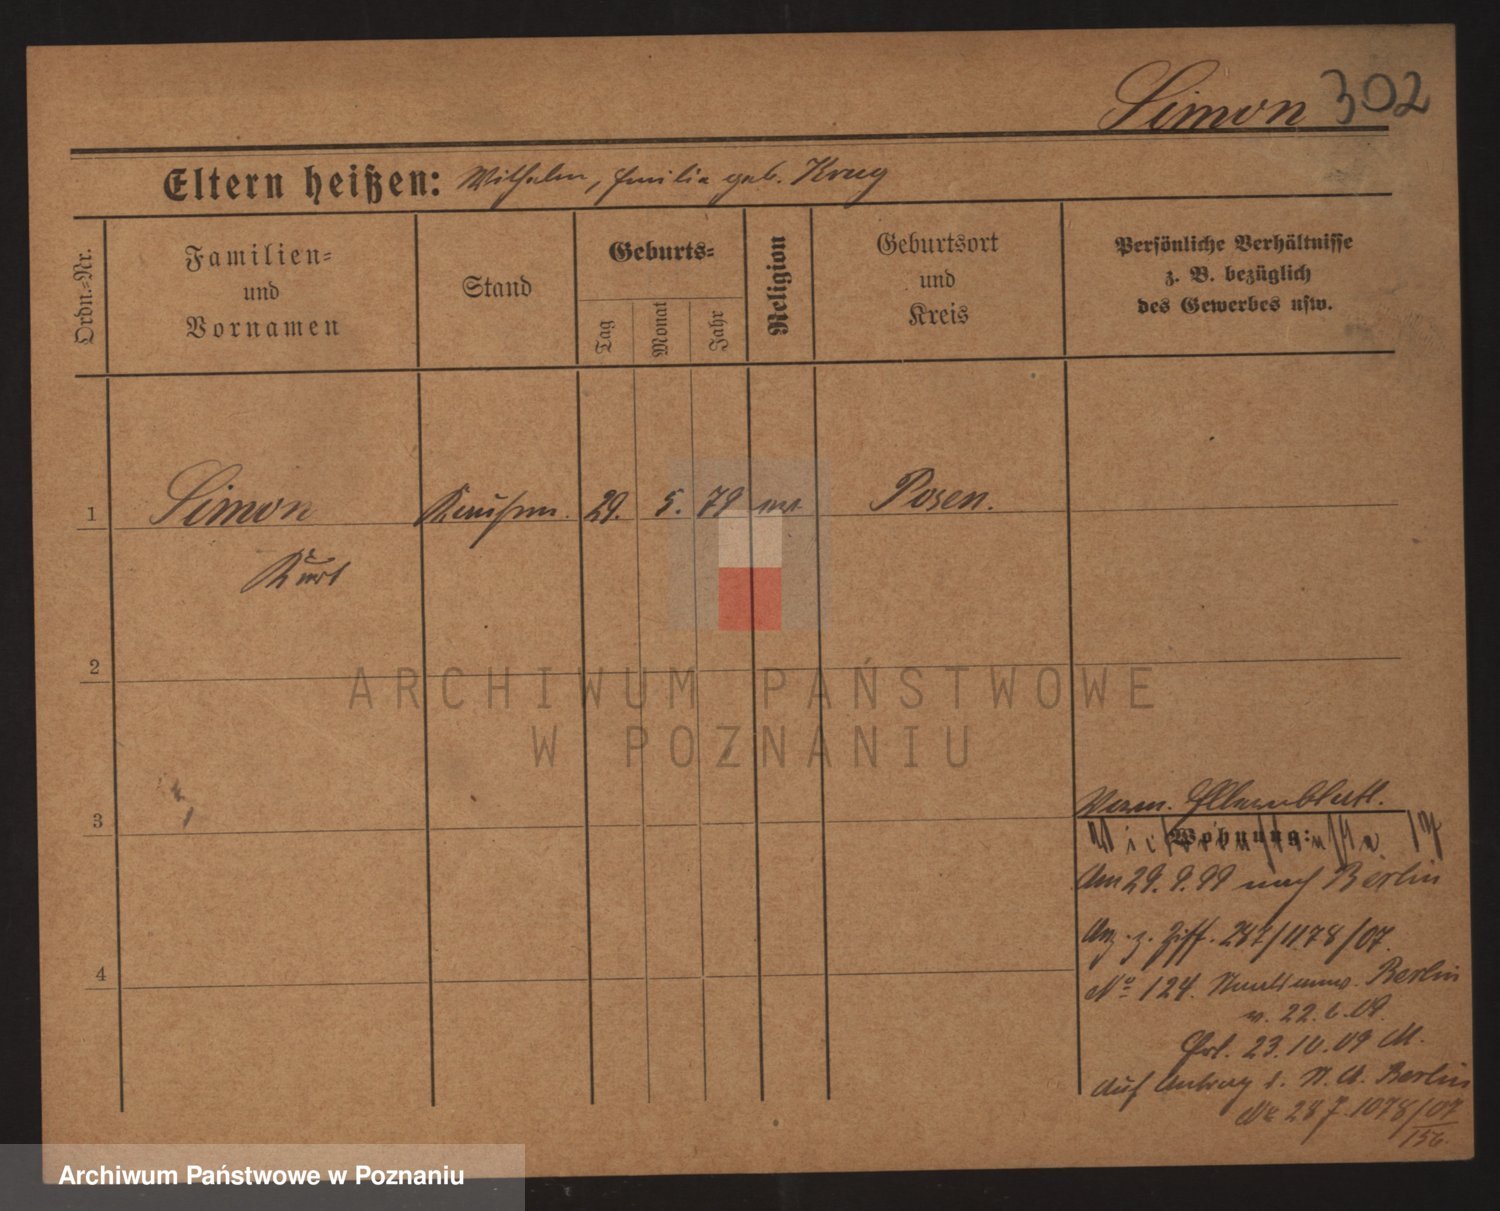 Simon 302
Eltern heißen: Wilhelm, Emilie geb. Krug
Ordn.-Nr.
Familien-
und
Vornamen
Stand
Geburts-
Tag
Monat
Jahr
Religion
Geburtsort
und
Kreis
Persönliche Verhältnisse
z. B. bezüglich
des Gewerbes usw.
1 Simon Kaufm. 29. 5. 79 Posen.
Kurt
2
ARCHIWUM PAŃSTWOWE
W POZNANIU
3
Elternblatt.
Wohnung:
Am 29. 9. 99 nach Berlin
z. Ziff. 287/1178/07.
4
No 124. Berlin
v. 22. 6. 09.
Erl. 23. 10. 09 M.
Auf Antrag d. Berlin
No 287.1078/07
156.
Archiwum Państwowe w Poznaniu